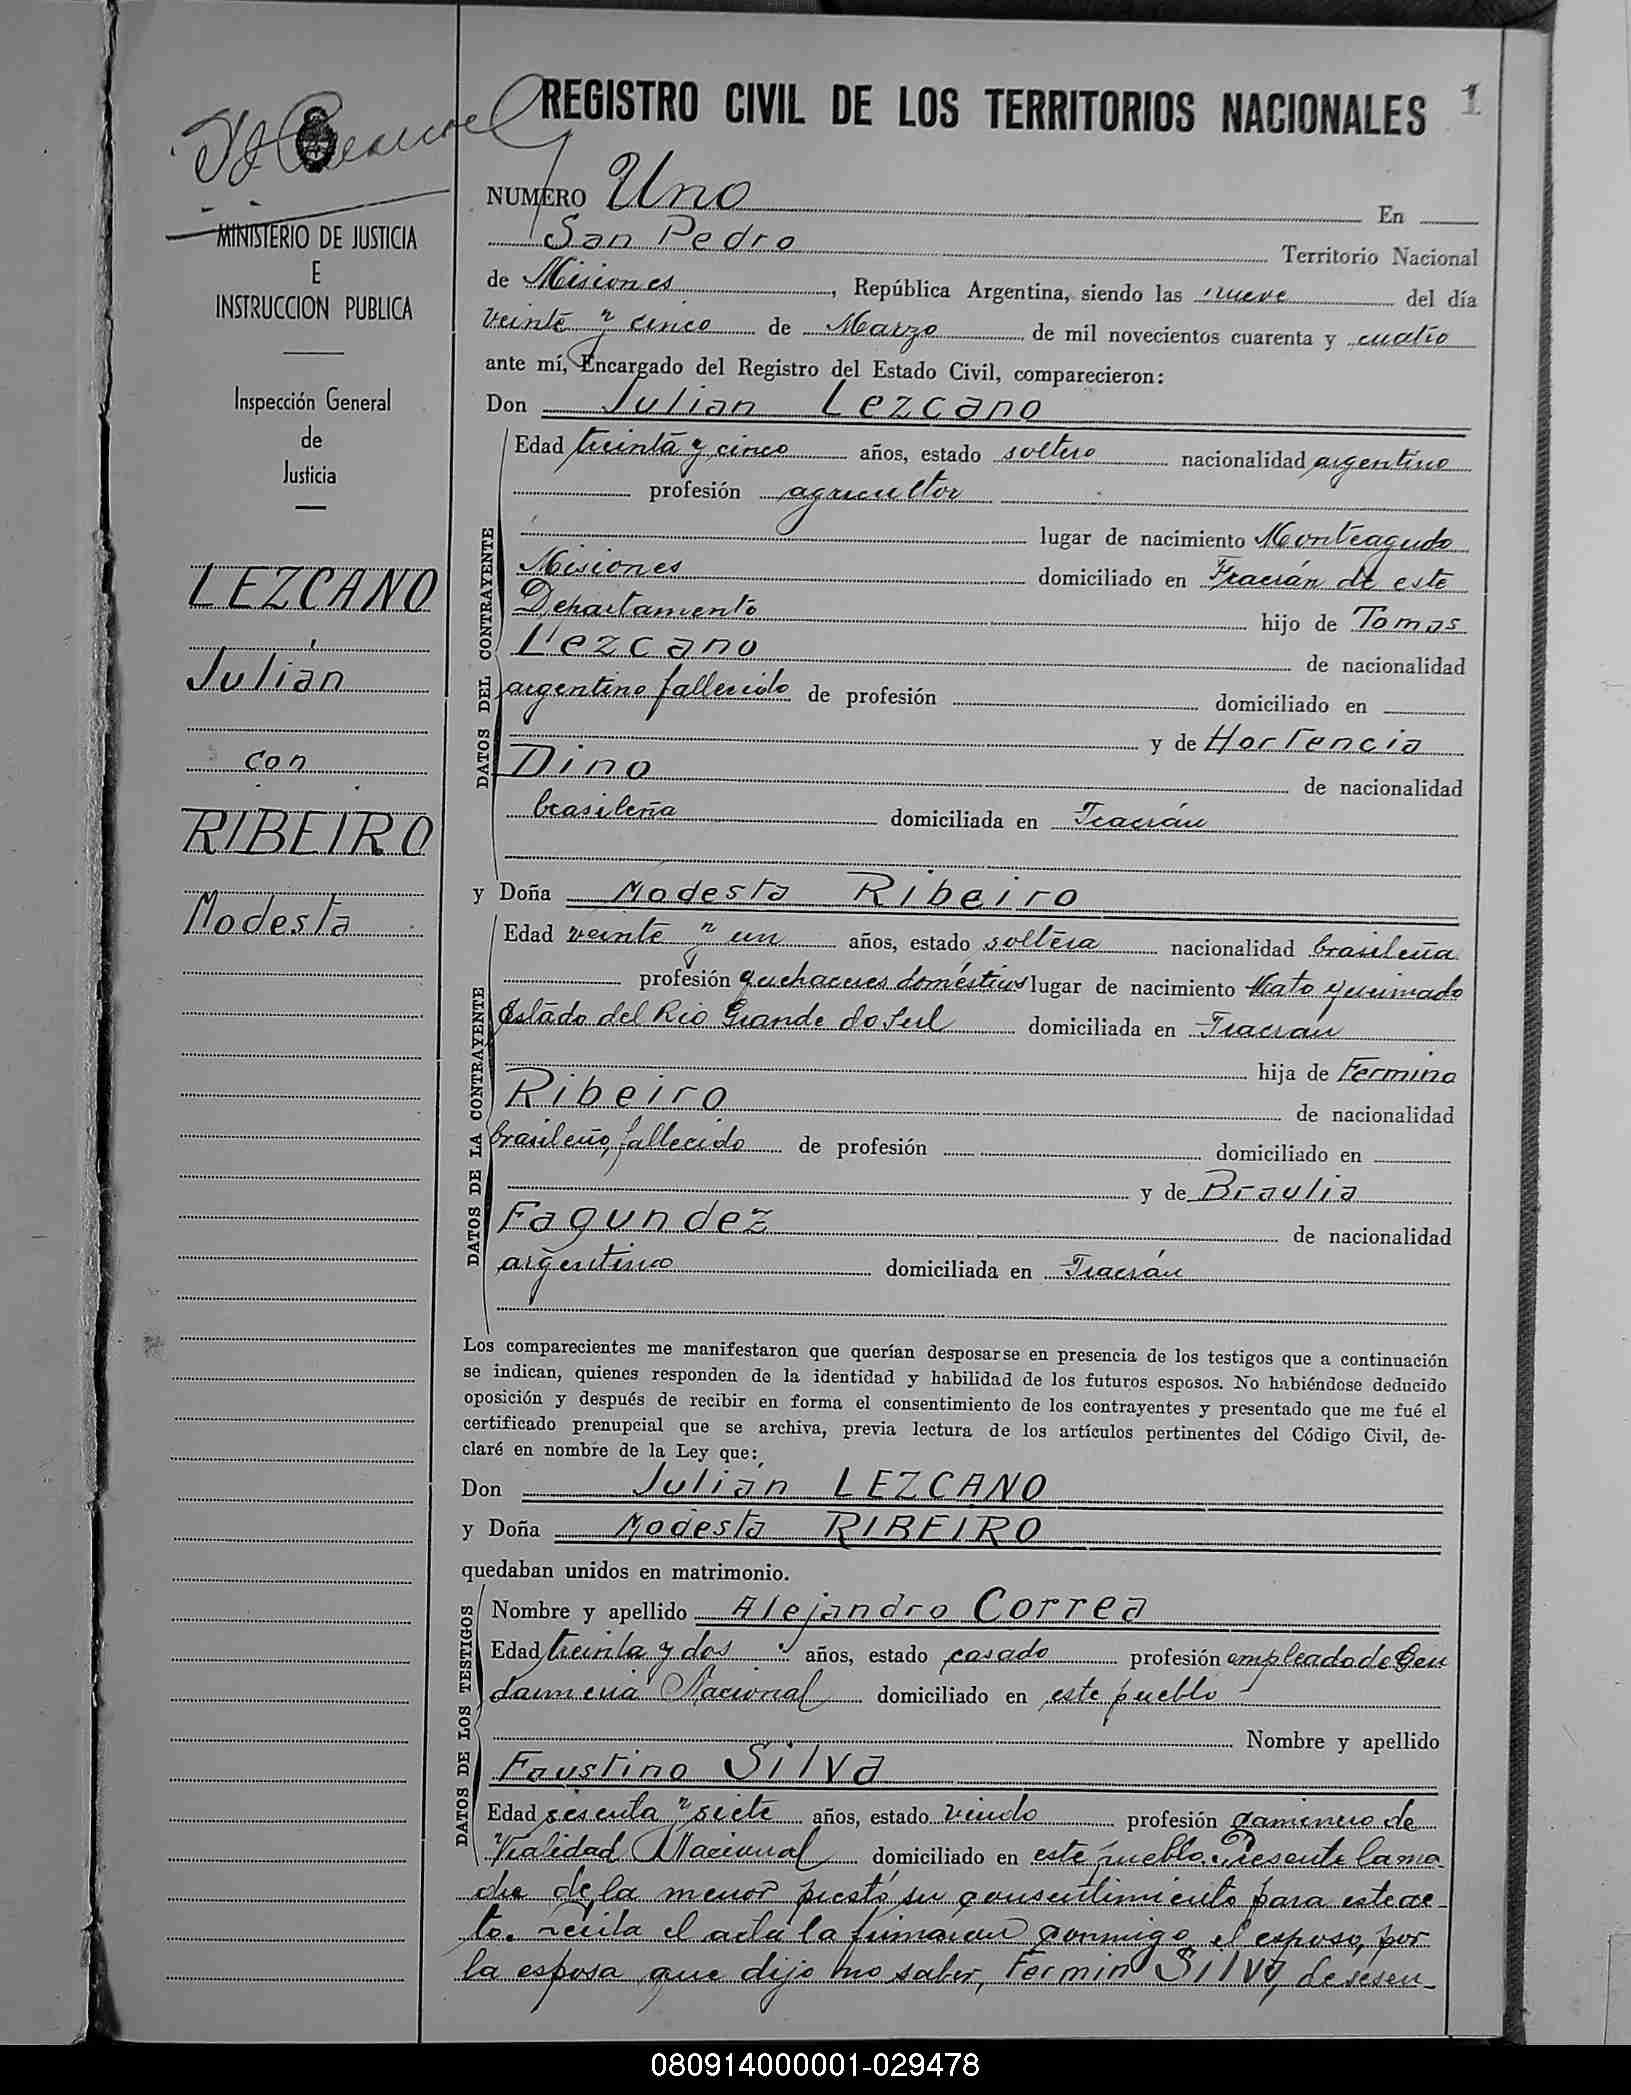 REGISTRO CIVIL DE LOS TERRITORIOS NACIONALES 1
MINISTERIO DE JUSTICIA
E
INSTRUCCION PUBLICA
Inspección General
de
Justicia
LEZCANO
Julián
con
RIBEIRO
Modesta
NUMERO Uno En
San Pedro Territorio Nacional
de Misiones, República Argentina, siendo las nueve del día
veinte y cinco de Marzo de mil novecientos cuarenta y cuatro
ante mí, Encargado del Registro del Estado Civil, comparecieron:
Don Julian Lezcano
DATOS DEL CONTRAYENTE
Edad treinta y cinco años, estado soltero nacionalidad argentino
profesión agricultor
lugar de nacimiento Monteagudo
Misiones domiciliado en Fracrán de este
Departamento hijo de Tomas
Lezcano de nacionalidad
argentino fallecido de profesión domiciliado en
y de Hortencia
Dino de nacionalidad
brasileña domiciliada en Fracrán
y Doña Modesta Ribeiro
DATOS DE LA CONTRAYENTE
Edad veinte y un años, estado soltera nacionalidad brasileña
profesión quehaceres domésticos lugar de nacimiento Mato queimado
Estado del Rio Grande do Sul domiciliada en Fracran
hija de Fermino
Ribeiro de nacionalidad
brasileño, fallecido de profesión domiciliado en
y de Braulia
Fagundez de nacionalidad
argentina domiciliada en Fracrán
Los comparecientes me manifestaron que querían desposarse en presencia de los testigos que a continuación
se indican, quienes responden de la identidad y habilidad de los futuros esposos. No habiéndose deducido
oposición y después de recibir en forma el consentimiento de los contrayentes y presentado que me fué el
certificado prenupcial que se archiva, previa lectura de los artículos pertinentes del Código Civil, de-
claré en nombre de la Ley que:
Don Julián LEZCANO
y Doña Modesta RIBEIRO
quedaban unidos en matrimonio.
DATOS DE LOS TESTIGOS
Nombre y apellido Alejandro Correa
Edad treinta y dos años, estado casado profesión empleado de Gen
darmeria Nacional domiciliado en este pueblo
Nombre y apellido
Faustino Silva
Edad sesenta y siete años, estado viudo profesión caminero de
Vialidad Nacional domiciliado en este pueblo. Presente la ma-
dre de la menor prestó su consentimiento para este ac-
to. Leida el acta la firmaron conmigo el esposo, por
la esposa que dijo no saber, Fermin Silva, de sesen-
080914000001-029478